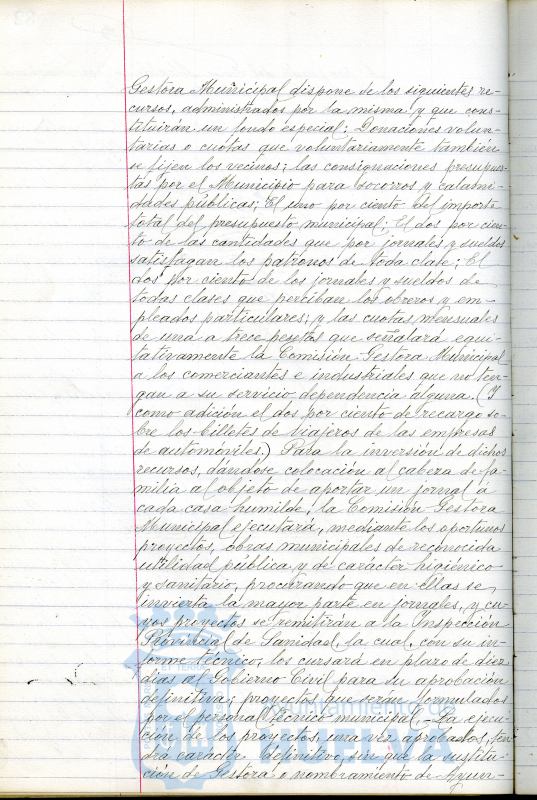 Gestora Municipal dispone de los siguientes re-
cursos, administrados por la misma y que cons-
tituirán un fondo especial: Donaciones volun-
tarias o cuotas que voluntariamente tambien
se fijen los vecinos; las consignaciones presupues-
tas por el Municipio para socorros y calami-
dades públicas; El uno por ciento del importe
total del presupuesto municipal; El dos por cien-
to de las cantidades que por jornales y sueldos
satisfagan los patronos de toda clase; El
dos por ciento de los jornales y sueldos de
todas clases que perciban los obreros y em-
pleados particulares; y las cuotas mensuales
de una a trece pesetas que señalará equi-
tativamente la Comisión Gestora Municipal
a los comerciantes e industriales que no ten-
gan a su servicio dependencia alguna. (Y
como adición el dos por ciento de recargo so-
bre los billetes de viajeros de las empresas
de automóviles.) Para la inversión de dichos
recursos, dándose colocación al cabeza de fa-
milia al objeto de aportar un jornal á
cada casa humilde, la Comisión Gestora
Municipal ejecutará, mediante los oportunos
proyectos, obras municipales de reconocida
utilidad pública y de carácter higiénico
y sanitario, procurando que en ellas se
invierta la mayor parte en jornales, y cu-
yos proyectos se remitirán a la Inspección
Provincial de Sanidad la cual, con su in-
forme técnico, los cursará en plazo de diez
dias al Gobierno Civil para su aprobación
definitiva; proyectos que serán formulados
por el personal técnico municipal.- La ejecu-
ción de los proyectos, una vez aprobados, ten-
drá carácter definitivo, sin que la sustitu-
ción de Gestora o nombramiento de Ayun-
Ayuntamiento de
HUELVA